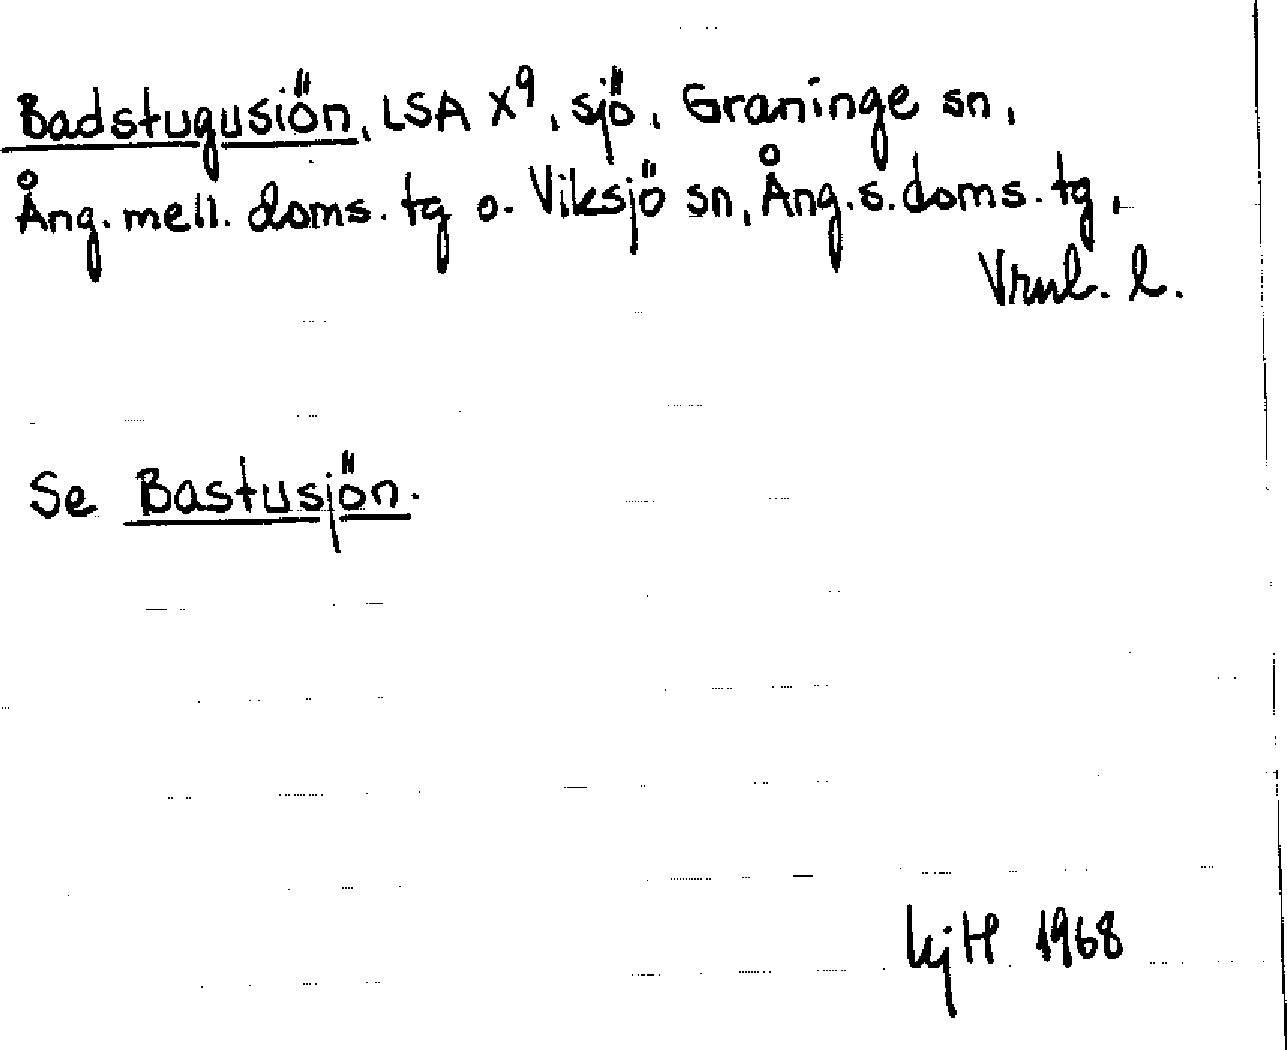 Badstugusiön, LSA X⁹, sjö, Graninge sn,
Ång. mell. doms. tg o. Viksjö sn, Ång. s. doms. tg,
Vrnl. l.
Se Bastusjön.
1968